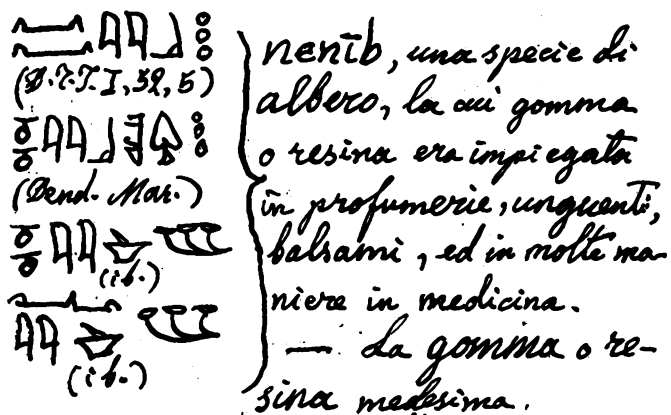 (D.T.T.I, 32, 5)
(Dend. Mar.)
(ib.)
(ib.)
nenīb, una specie di
albero, la cui gomma
o resina era impiegata
in profumerie, unguenti,
balsami, ed in molte ma-
niere in medicina.
— La gomma o re-
sina medesima.